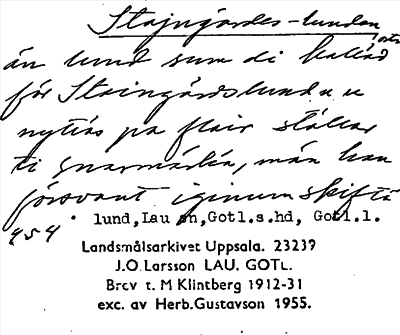 Stajngårdes-lunden,
än lund sum di kallad
för Staingårdslunden u
nyttås pa flair ställar
ti gnarmärken, män han
försvant iginum skiftä
454 lund, Lau sn, Gotl.s.hd, Gotl.l.
Landsmålsarkivet Uppsala. 23239
J.O. Larsson LAU. GOTL.
Brev t. M Klintberg 1912-31
exc. av Herb. Gustavson 1955.